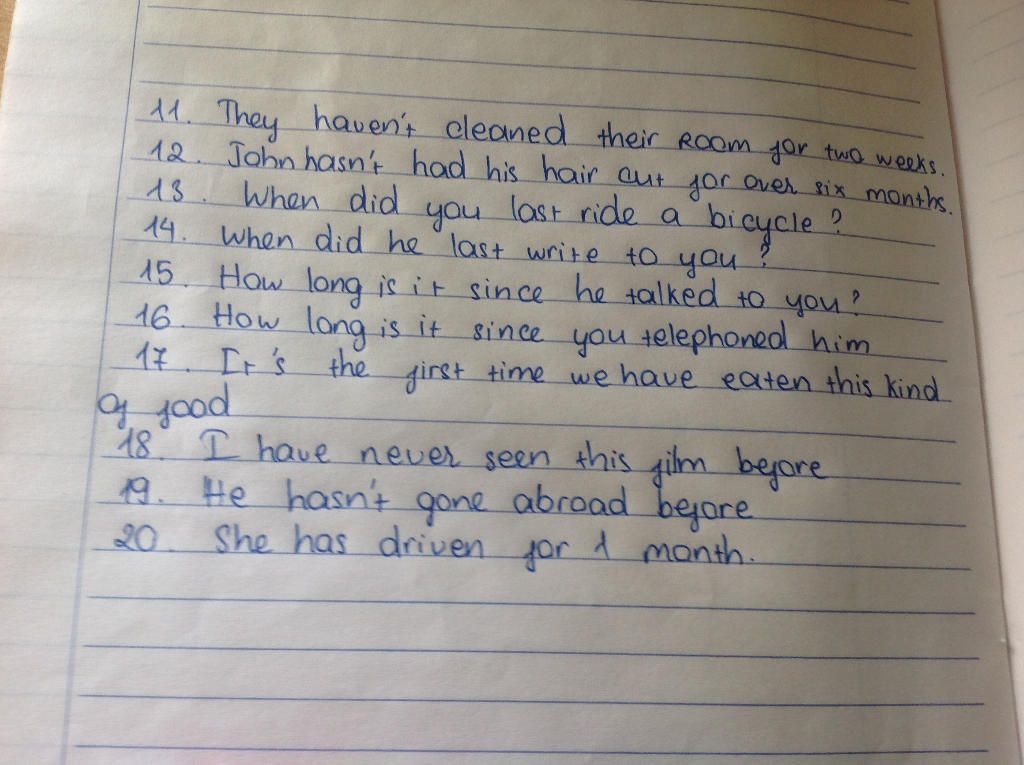 11. They haven't cleaned their Room for two weeks.
12. John hasn't had his hair cut for over six months.
13. When did you last ride a bicycle?
14. When did he last write to you?
15. How long is it since he talked to you?
16. How long is it since you telephoned him
17. It's the first time we have eaten this kind
of food
18. I have never seen this film before
19. He hasn't gone abroad before
20. She has driven for 1 month.